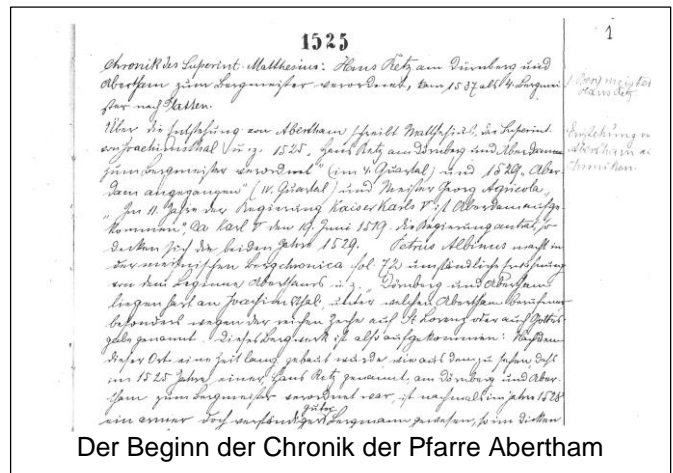 1525
1
Chronik des Superint. Matthesius: Hans Retz am Dürnberg und
Abertham zum Bergmeister verordnet, kam 1537 als 4. Bergmei-
ster nach Platten.
1 Bergmeister
Hans Retz
Über die Entstehung von Abertham schreibt Matthesius, der Superint.
von Joachimsthal u. z. 1525. „Hans Retz am Dörnberg und Aberdamm
zum Bergmeister verordnet" (im 4. Quartal) und 1529. „Aber-
dam angegangen" (IV. Quartal) und Meister Georg Agricola
„Im 11. Jahre der Regierung Kaiser Karls V ist Aberdam aufge-
kommen". Da Karl V den 19. Juni 1519 die Regierung antrat, so
decken sich die beiden Jahre 1529. Petrus Albinus macht in
der meißnischen Bergchronica fol. 72 umständliche Erwähnung
von dem Beginne Aberthams u. z. „Dörnberg und Abertham
liegen hart an Joachimsthal, unter welchen Abertham berufener
besonders wegen der reichen Zeche auf St Lorenz oder auch Gottes-
gabe genannt. Dieses Bergwerk ist also aufgekommen: Nachdem
dieser Ort eine Zeit lang gebaut wurde, wie aus dem zu sehen, daß
im 1525 Jahre einer, Hans Retz genannt, am Dörnberg und Aber-
tham zum Bergmeister verordnet war, ist nachmals im Jahre 1528
ein armer doch verständiger guter Bergmann gewesen, so im dicken
Entstehung
Abertham
Chroniken.
Der Beginn der Chronik der Pfarre Abertham